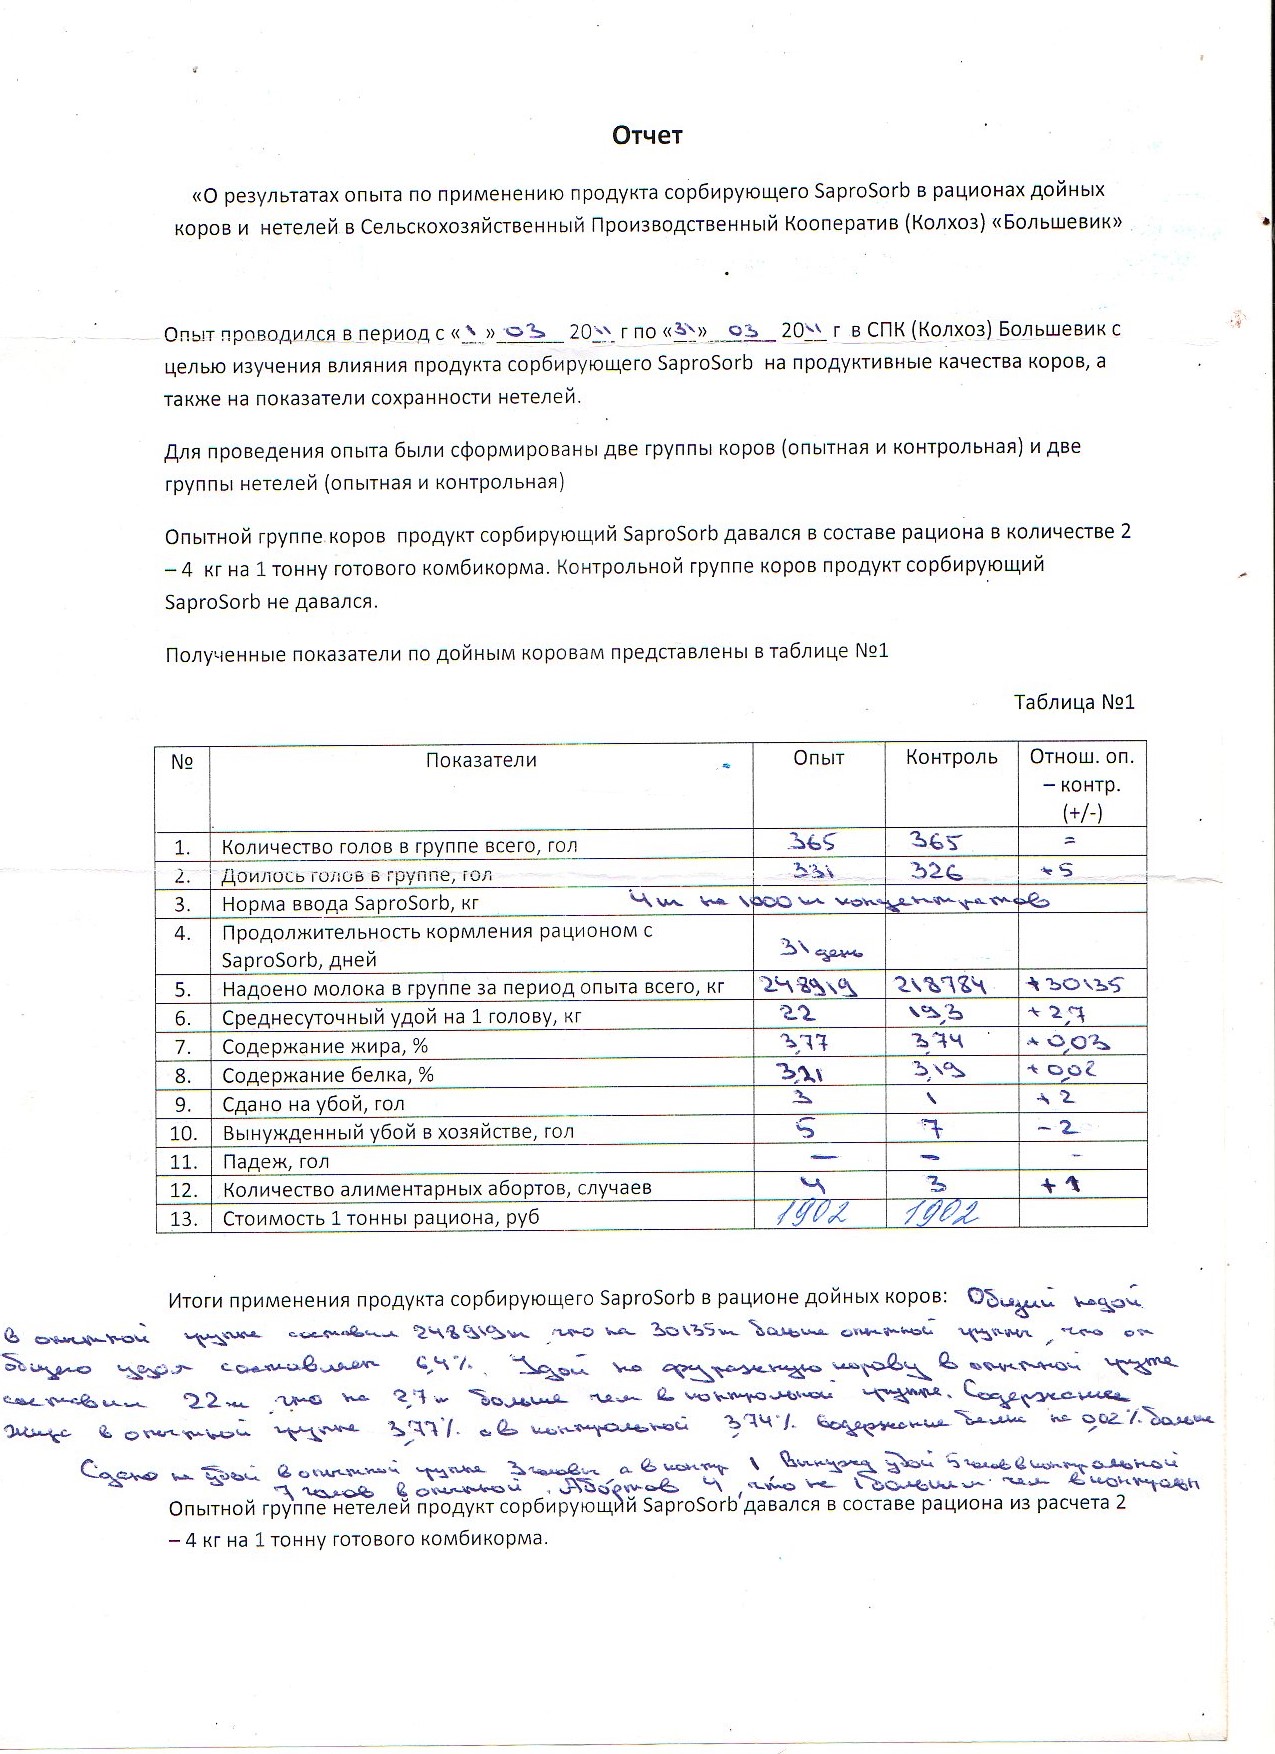 Отчет
«О результатах опыта по применению продукта сорбирующего SaproSorb в рационах дойных
коров и нетелей в Сельскохозяйственный Производственный Кооператив (Колхоз) «Большевик»
Опыт проводился в период с «1» 03 2011 г по «31» 03 2011 г в СПК (Колхоз) Большевик с
целью изучения влияния продукта сорбирующего SaproSorb на продуктивные качества коров, а
также на показатели сохранности нетелей.
Для проведения опыта были сформированы две группы коров (опытная и контрольная) и две
группы нетелей (опытная и контрольная)
Опытной группе коров продукт сорбирующий SaproSorb давался в составе рациона в количестве 2
– 4 кг на 1 тонну готового комбикорма. Контрольной группе коров продукт сорбирующий
SaproSorb не давался.
Полученные показатели по дойным коровам представлены в таблице №1
Таблица №1
№ Показатели Опыт Контроль Отнош. оп.
– контр.
(+/-)
1. Количество голов в группе всего, гол 365 365 =
2. Доилось голов в группе, гол 331 326 +5
3. Норма ввода SaproSorb, кг 4кг на 1000кг концентратов
4. Продолжительность кормления рационом с
SaproSorb, дней 31 день
5. Надоено молока в группе за период опыта всего, кг 248919 218784 +30135
6. Среднесуточный удой на 1 голову, кг 22 19,3 +2,7
7. Содержание жира, % 3,77 3,74 +0,03
8. Содержание белка, % 3,21 3,19 +0,02
9. Сдано на убой, гол 3 1 +2
10. Вынужденный убой в хозяйстве, гол 5 7 -2
11. Падеж, гол — – -
12. Количество алиментарных абортов, случаев 4 3 +1
13. Стоимость 1 тонны рациона, руб 1902 1902
Итоги применения продукта сорбирующего SaproSorb в рационе дойных коров: Общий надой
в опытной группе составил 248919кг что на 30135кг больше опытной группы, что от
общего составляет 6,4%. Удой на фуражную корову в опытной группе
составил 22кг что на 2,7кг больше чем в контрольной группе. Содержание
жира в опытной группе 3,77% а в контрольной 3,74%. Содержание белка на 0,02% больше
Сдано на убой в опытной группе 3 головы а в контр 1, Вынужд убой 5 голов в контрольной
7 голов в опытной. Абортов 4, что на 1 больше чем в
Опытной группе нетелей продукт сорбирующий SaproSorb давался в составе рациона из расчета 2
– 4 кг на 1 тонну готового комбикорма.